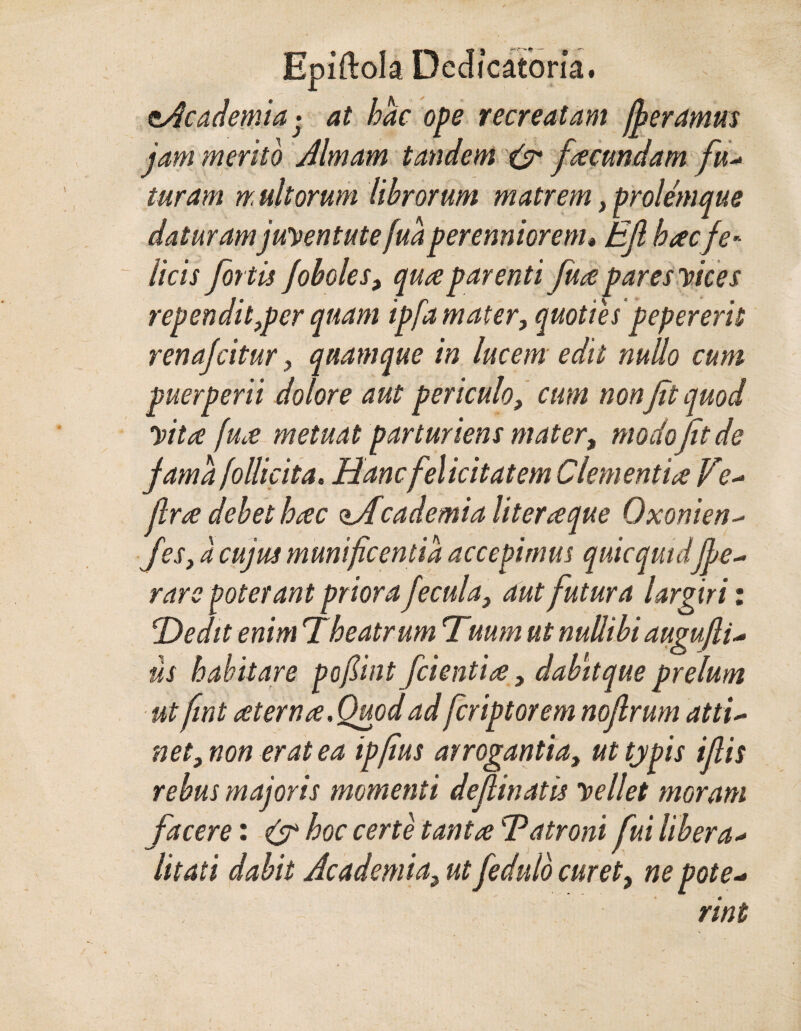 Epiſtola Dedicatoria.
Academia; at hâc ope recreatam ſperamus
jam meritò Almam tandem & fæcundam fu-
turam multorum librorum matrem, prolémque
daturam juventute ſuâ perenniorem. Eſt hæc fe-
licis ſortis ſoboles, quæ parenti ſuæ pares vices
rependit, per quam ipſa mater, quoties pepererit
renaſcitur, quamque in lucem edit nullo cum
puerperii dolore aut periculo, cum non ſit quod
vitæ ſuæ metuat parturiens mater, modo ſit de
famâ ſollicita. Hanc felicitatem Clementiæ Ve-
ſtræ debet hæc Academia literæque Oxonien-
ſes, à cujus munificentiâ accepimus quicquid ſpe-
rare poterant priora ſecula, aut futura largiri:
Dedit enim Theatrum Tuum ut nullibi auguſti-
ùs habitare poſſint ſcientiæ, dabitque prelum
ut ſint æternæ. Quod ad ſcriptorem noſtrum atti-
net, non erat ea ipſius arrogantia, ut typis iſtis
rebus majoris momenti deſtinatis vellet moram
facere: & hoc certè tantæ Patroni ſui libera-
litati dabit Academia, ut ſedulò curet, ne pote-
rint